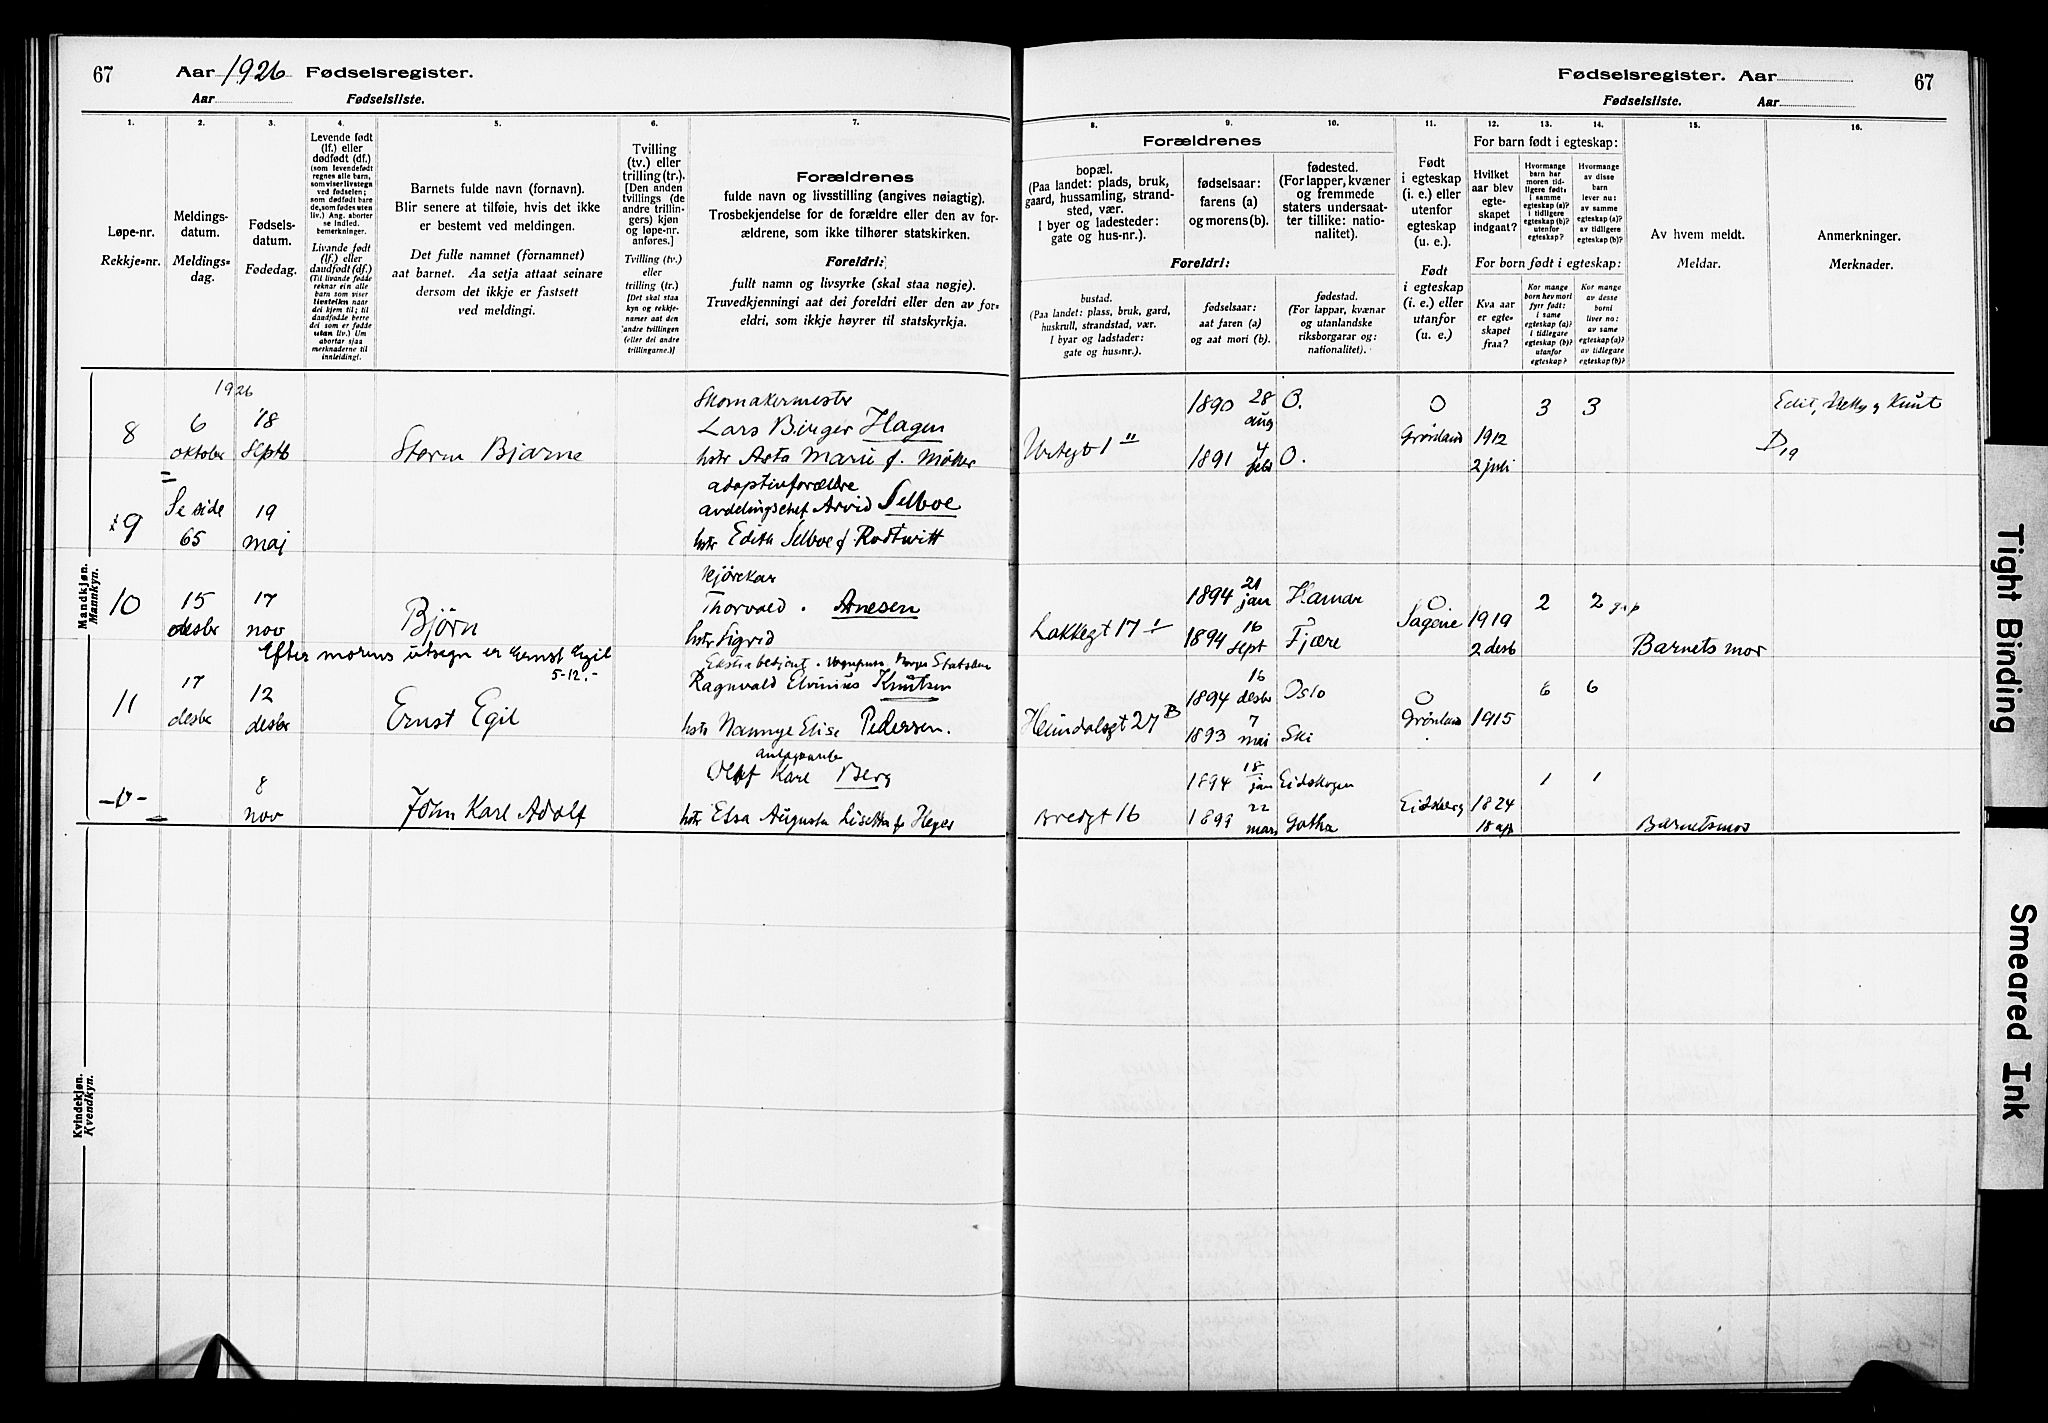 67 Aar 1926 Fødselsregister.
Aar Fødselsliste.
Fødselsregister. Aar 67
Fødselsliste. Aar
1. 2. 3. 4. 5. 6. 7. 8. 9. 10. 11. 12. 13. 14. 15. 16.
Løpe-nr.
Rekkje-nr.
Meldings-
datum.
Meldings-
dag.
Fødsels-
datum.
Fødedag.
Levende født
(lf.) eller
dødfødt (df.)
(som levendefødt
regnes alle barn,
som viser livstegn
ved fødselen;
som dødfødt bare
de, som fødes uten
liv.) Ang. aborter
se indled.
bemerkninger.
Livande født
(lf.) eller
daudfødt (df.)
(Til livande fødde
reknar ein alle
barn som viser
livsteikn naar
dei kjem til; til
daudfødde berre
dei som er fødde
utan liv.) Um
abortar sjaa
merknaderne til
innleidingi.
Barnets fulde navn (fornavn).
Blir senere at tilføie, hvis det ikke
er bestemt ved meldingen.
Det fulle namnet (fornamnet)
aat barnet. Aa setja attaat seinare
dersom det ikkje er fastsett
ved meldingi.
Tvilling
(tv.) eller
trilling (tr.).
[Den anden
tvillings (de
andre trillin-
gers) kjøn
og løpe-nr.
anføres.]
Tvilling (tv.)
eller
trilling (tr.)
[Det skal staa
kyn og rekkje-
numer aat den
andre tvillingen
(eller dei andre
trillingarne.)]
Forældrenes
fulde navn og livsstilling (angives nøiagtig).
Trosbekjendelse for de forældre eller den av for-
ældrene, som ikke tilhører statskirken.
Foreldri:
fullt namn og livsyrke (skal staa nøgje).
Truvedkjenningi aat dei foreldri eller den av for-
eldri, som ikkje høyrer til statskyrkja.
Forældrenes
bopæl.
(Paa landet: plads, bruk,
gaard, hussamling, strand-
sted, vær.
I byer og ladesteder:
gate og hus-nr.).
fødselsaar:
farens (a)
og morens (b).
fødested.
(For lapper, kvæner
og fremmede
staters undersaat-
ter tillike: natio-
nalitet).
Foreldri:
bustad.
(Paa landet: plass, bruk, gard,
huskrull, strandstad, vær.
I byar og ladstader:
gate og hus-nr.).
fødselsaar:
aat faren (a)
og aat mori (b).
fødestad.
(For lappar, kvænar
og utanlandske
riksborgarar og:
nationalitet).
Født
i egteskap
(i. e.) eller
utenfor
egteskap
(u. e.).
Født
i egteskap
(i. e.) eller
utanfor
(u. e.).
For barn født i egteskap:
Hvilket
aar blev
egte-
skapet
indgaat?
Hvormange
barn har
moren tid-
ligere født:
i samme
egteskap (a)?
i tidligere
egteskap (b)?
utenfor
egteskap?
Hvormange
av disse
barn
lever nu:
av samme
egteskap (a)?
av tidligere
egteskap (b)?
For born født i egteskap:
Kva aar
er egte-
skapet
fraa?
Kor mange
born hev mori
fyrr født:
i same
egteskap (a)?
i tidlegare
egteskap (b)?
utanfor
egteskap?
Kor mange
av desse
borni
liver no:
av same
egteskap (a)?
av tidlegare
egteskap (b)?
Av hvem meldt.
Meldar.
Anmerkninger.
Merknader.
Mandkjøn.
Mannkyn.
1926
8 6 oktober 18 Septb Storm Bjarne
Skomakermester
Lars Birger Hagen
hstr Asta Marie f. Møller
Urtegt 1 II
1890 28 aug O.
1891 4 feb O.
O
Grønland 1912 2 juli 3 3
Edit, Netty og Knut
D 19
9 Se side 65 19 maj
adoptivforældre
avdelingschef Arvid Selboe
hstr Edith Selboe f Rodtwitt
10 15 desbr 17 nov Bjørn
Kjørekar
Thorvald. Anesen
hstr Sigrid
Lakkegt 17 I
1894 21 jan Hamar
1894 16 sept Fjære
O
Sagene 1919 2 desb 2 2
Barnets mor
Efter morens utsegn er Ernst Egil
5-12.-
11 17 desbr 12 desbr Ernst Egil
Ragnvald Elvinius Knutsen
hstr Nannye Elise Pedersen.
Heimdalsgt 27 B
1894 16 desbr Oslo
1893 7 mai Ski
O
Grønland 1915 6 6
-0- 8 nov John Karl Adolf
Olaf Karl Berg
hstr Elsa Augusta Lisetta f. Heyer
Bredgt 16
1894 18 jan Eidskogen
1899 22 mars Gotha
Eidsberg 1824 18 apr 1 1
Barnets mor
Kvindekjøn.
Kvendkyn.
Tight Binding
Smeared Ink